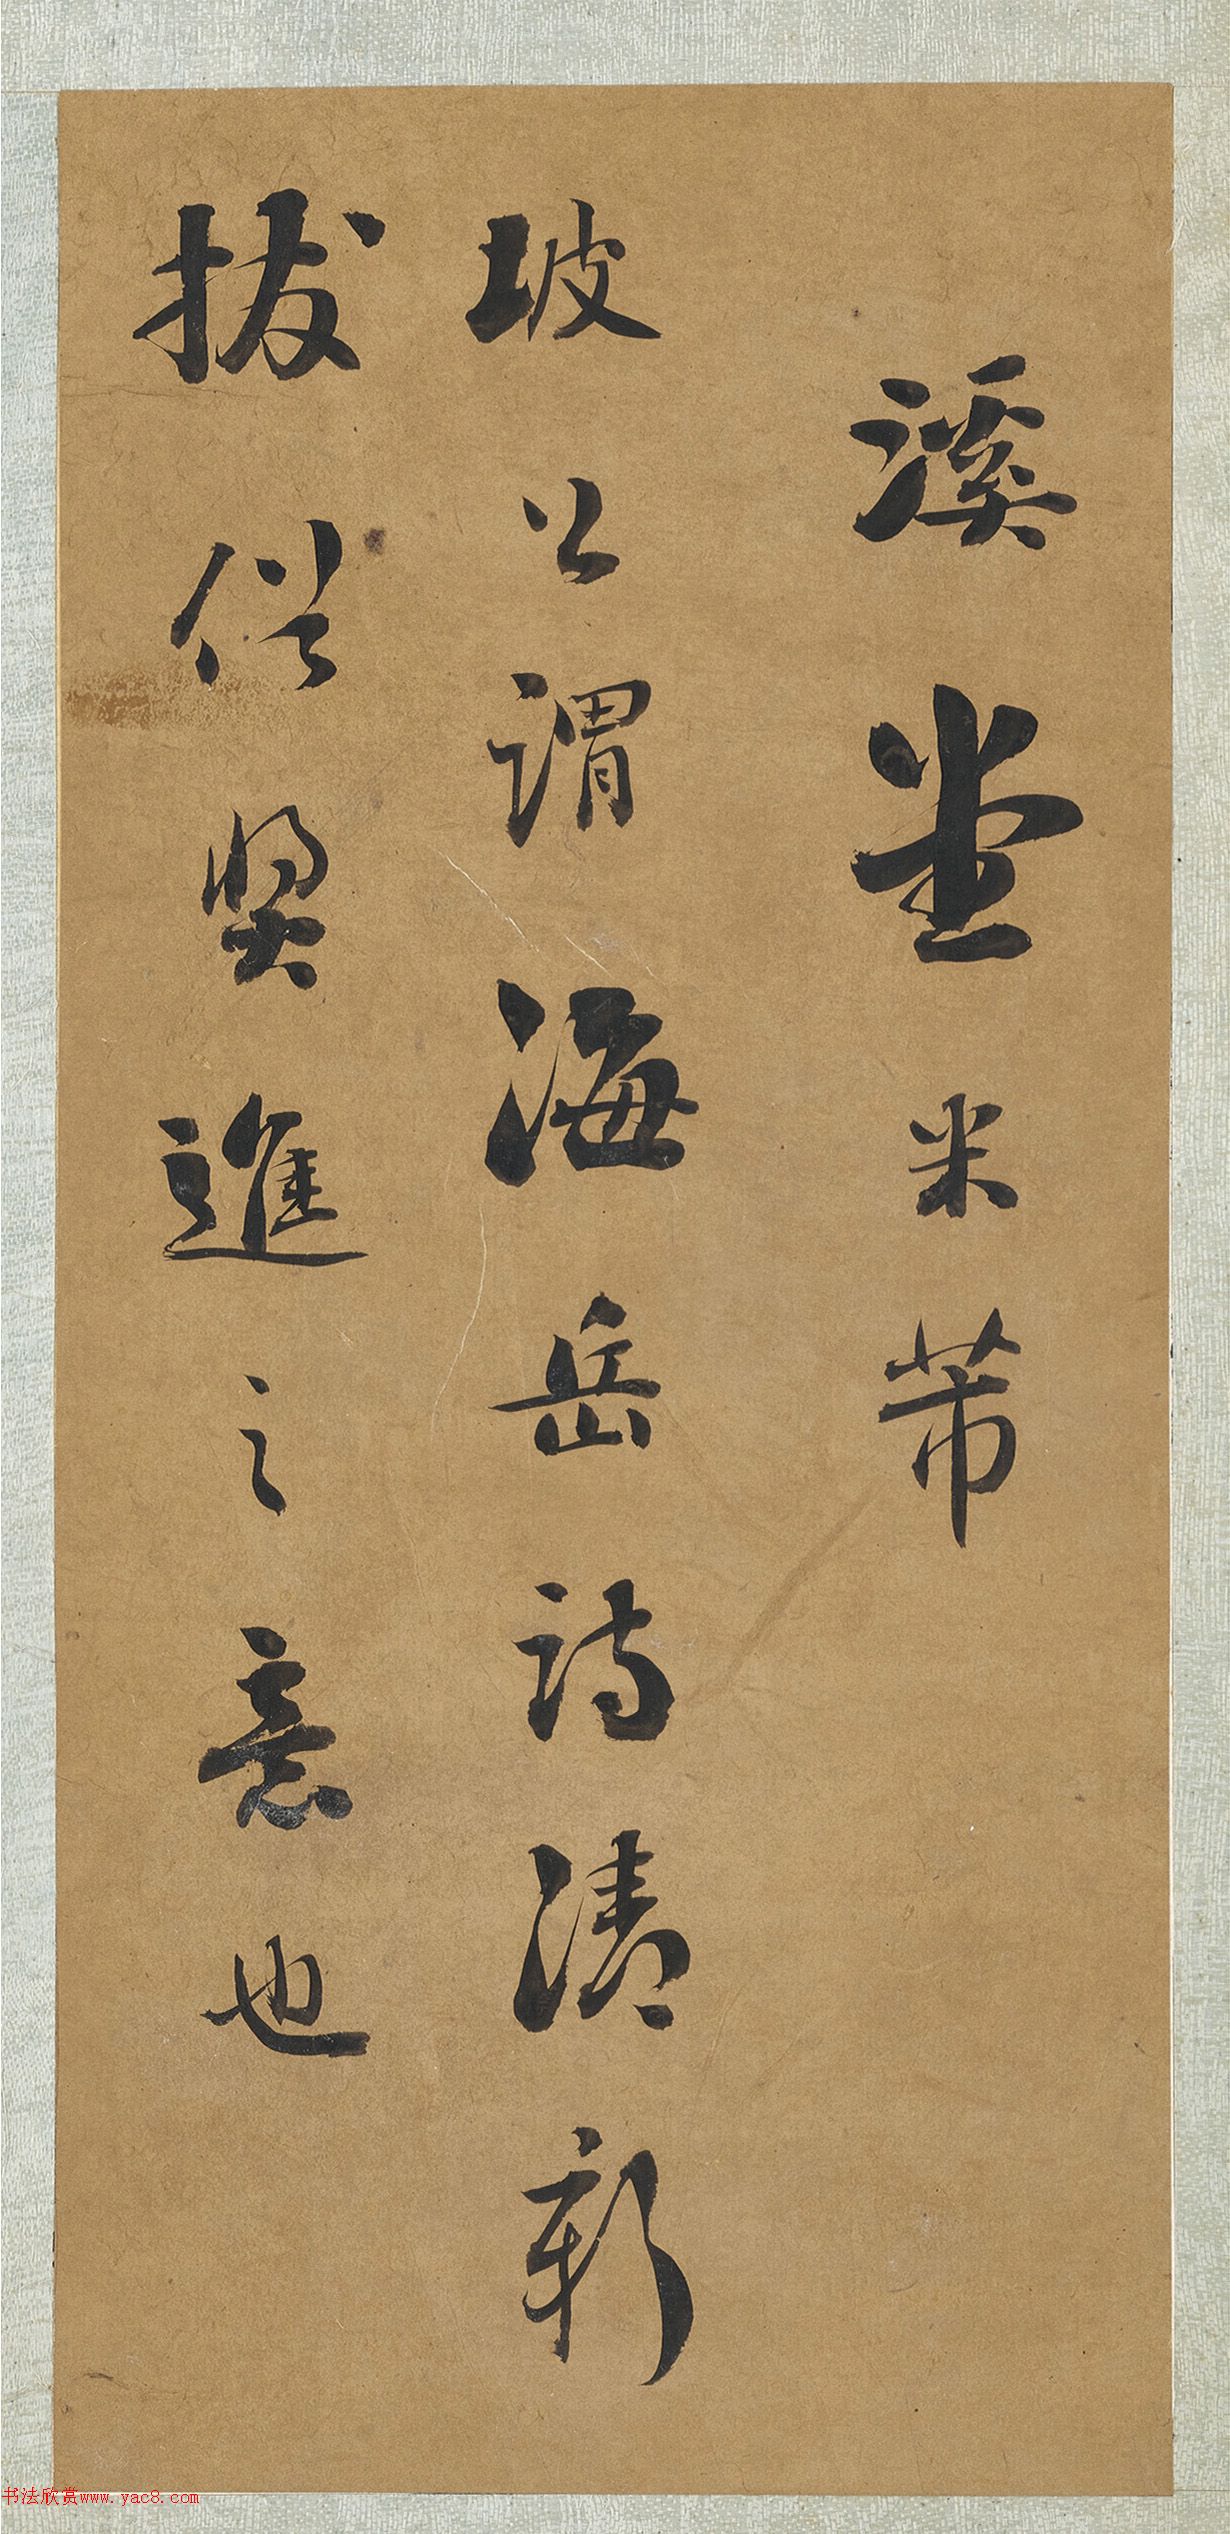 溪堂米芾
坡公謂海岳詩清新
拔俗奬進之意也
书法欣赏www.yac8.com